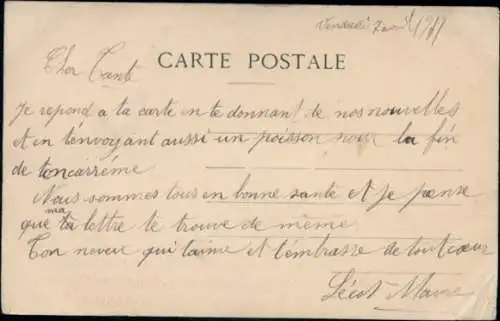 Vendredi 7 avril 1911
CARTE POSTALE
Cher Tante
Je repond a ta carte en te donnant de nos nouvelles
et en t'envoyant aussi un poisson pour la fin
de ton carréme
Nous sommes tous en bonne santé et je pense
que ma ta lettre te trouve de même
Ton neveu qui t'aime et t'embrasse de tout cœur